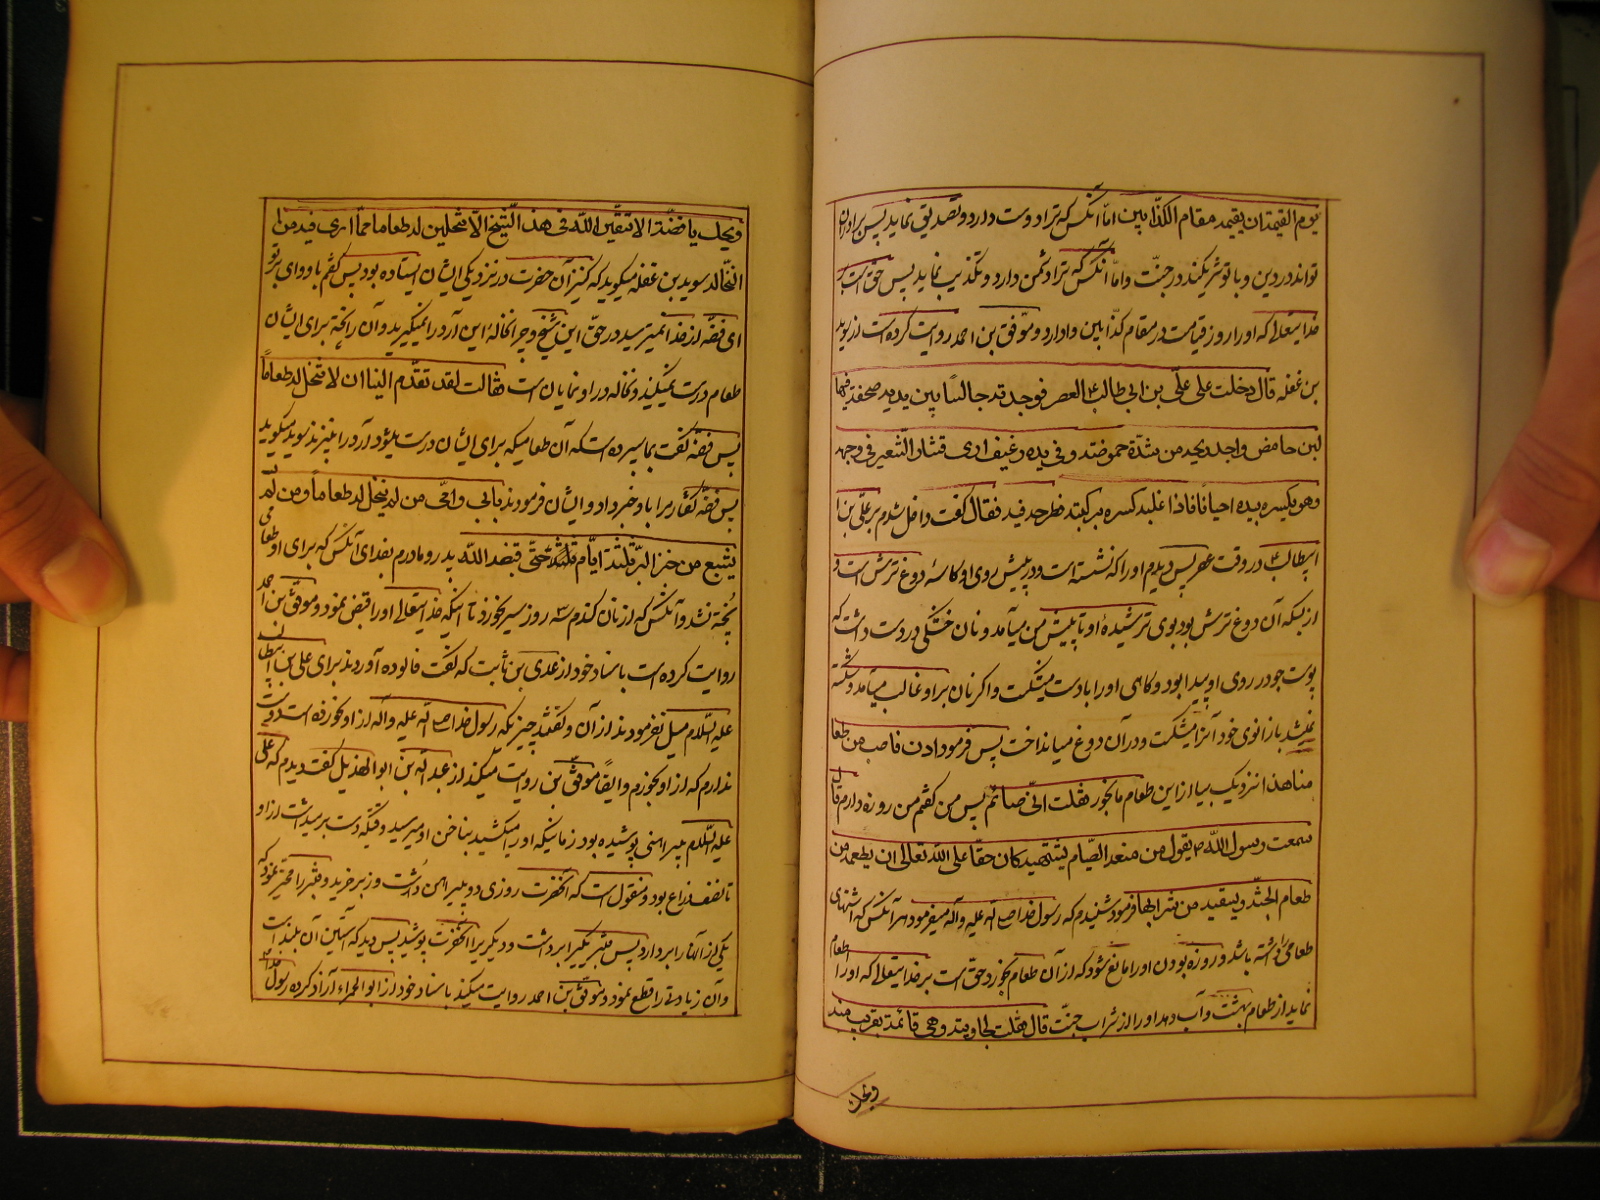 یوم القیمة ان یقیمه مقام الکذابین اما آنکس که ترا دوست دارد و تصدیق نماید پس برادران
تواند در دین و با تو شریکند در جنّت و امّا آنکس که ترا دشمن دارد و تکذیب نماید پس حق است بر
خدایتعالی که او را روز قیامت در مقام کذابین وا دارد و موّفق بن احمد روایت کرده است از سوید
بن غفله قال دخلت علی علّی بن ابی طالب ع العصر فوجدته جالسًا بین یدیه صحفة فیها
لبن حامض واجد ریحه من شدّة حموضته و فی یده رغیف اری قشار الشّعیر فی وجهه
وهو یکسره بیده احیانًا فاذا غلبه کسره برکبته فطرحه فیه فقال کفت داخل شدم بر علّی بن ا
ابیطالب ع در وقت عصر پس دیدم او را که نشسته است و در پیش روی او کاسهٔ دوغ ترش است و
از بسکه آن دوغ ترش بود بوی ترشیدهٔ او تا پیش من میآمد و نان خشکی در دست داشت که
پوست جو در روی او پیدا بود و کاهی او را با دست میشکست و اکر نان بر او غالب میآمد و شکسته
نمیشد با زانوی خود آنرا میشکست و در آن دوغ میانداخت پس فرمود ادن فاصب من طعا
منا هذا نزدیک بیا از این طعام ما بخور فقلت انّی صائم پس من کفتم من روزه دارم قال
سمعت رسول اللّه ص یقول من منعه الصّیام یشتهیه کان حقا علی اللّه تعالی ان یطعمه من
طعام الجنّة و یسقیه من شرابها فرمود شنیدم که رسول خدا صلی اله علیه و آله میفرمود هر آنکس که اشتهای
طعامی را داشته باشد و روزه بودن او را مانع شود که از آن طعام بخورد حق است بر خدایتعالی که او را اطعام
نماید از طعام بهشت و آب دهد او را از شراب جنّت قال فقلت لجاریته و هی قائمة بقرب منه
ویحک
ویحک یا فضّة الا تتقین اللّه فی هذا الشّیخ الا تنخلین له طعاما ممّا اری فیه من ا
النخالة سوید بن غفله میکوید که کنیز آن حضرت در نزدیکی ایشان ایستاده بود پس کفتم باو وای بر تو
ای فضّه از خدا نمیترسید در حقّ این شیخ و چرا نخالهٔ این آرد را نمیکیرید و آن را پخته برای ایشان
طعام درست میکنید و نخاله در او نمایان است فقالت لقد تقدّم الینا ان لا تنخل له طعاماً
پس فضّه کفت بما سپرده است که آن طعامیکه برای ایشان درست میشود آرد را نبیزید سوید میکوید
پس فضّه کفتار مرا باو خبر داد و ایشان فرمودند بابی و امّی من لم ینخل له طعاماً و من لم
یشبع من خبز البرّ ثلثة ایّام حتّی قبضه اللّه پدر و مادرم بفدای آنکس که برای او طعامی
پخته نشد و آنکس که از نان کندم سه روز سیر نخورد تا آنکه خدایتعالی او را قبض نمود و موفق بن احمد
روایت کرده است باسناد خود از عدی بن ثابت که کفت فالوده آوردند برای علی بن ابیطالب
علیه السّلام میل نفرمودند از آن و کفتند چیزیکه رسول خدا صلی اله علیه و آله از او نخورده است دوست
ندارم که از او بخورم و ایضًا موفّق بن روایت میکند از عبد اله بن ابو الهذیل کفت دیدم که علی
علیه السّلام پیراهنی پوشیده بود زمانیکه او را میکشید بناخن او میرسید و وقتیکه دست بر میداشت از او
تا نصف ذراع بود و منقول است که آنحضرت روزی دو پیراهن درشت و زبر خرید و قنبر را مخیّر نمود که
یکی از آنها را بردارد پس قنبر یکیرا برداشت و دیکریرا آنحضرت پوشید پس دید که آستین آن بلند است
و آن زیادتی را قطع نمود و موفّق بن احمد روایت میکند باسناد خود از ابو الحمراء آزاد کرده رسول خدا ص